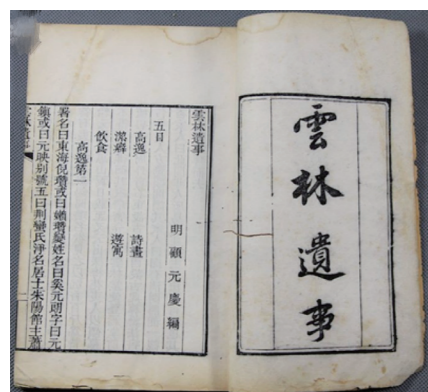 雲林遺事
雲林遺事
明 顧 元 慶 編
五目
高逸 詩畫
潔癖 遊寓
飲食
高逸第一
署名曰東海倪瓚或曰嬾瓚變姓名曰奚元朗字曰元
鎮或曰元映别號五曰荆蠻氏淨名居士朱陽館主蕭